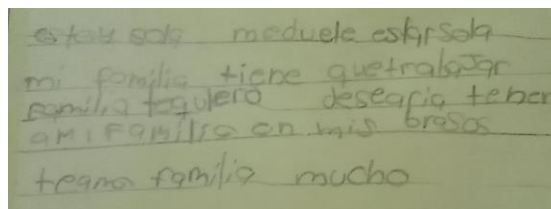 estoy sola meduele estar sola
mi familia tiene quetrabajar
familia tequiero desearia tener
ami familia en mis brasos
teamo familia mucho